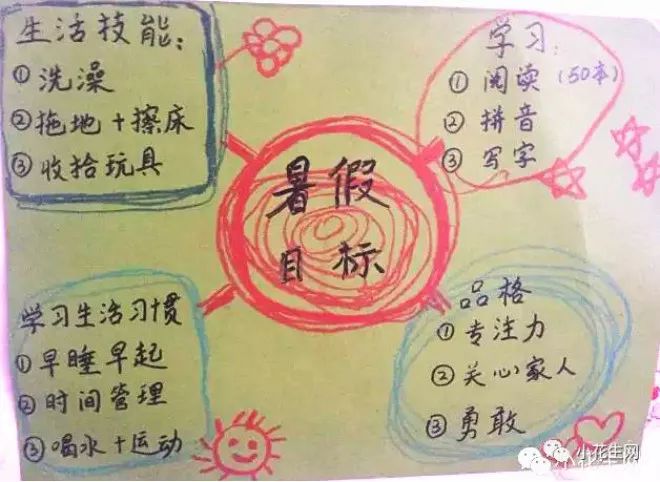 生活技能：
①洗澡
②拖地+擦床
③收拾玩具
学习：
①阅读（50本）
②拼音
③写字
暑假
目标
学习生活习惯
①早睡早起
②时间管理
③喝水+运动
品格
①专注力
②关心家人
③勇敢
小花生网